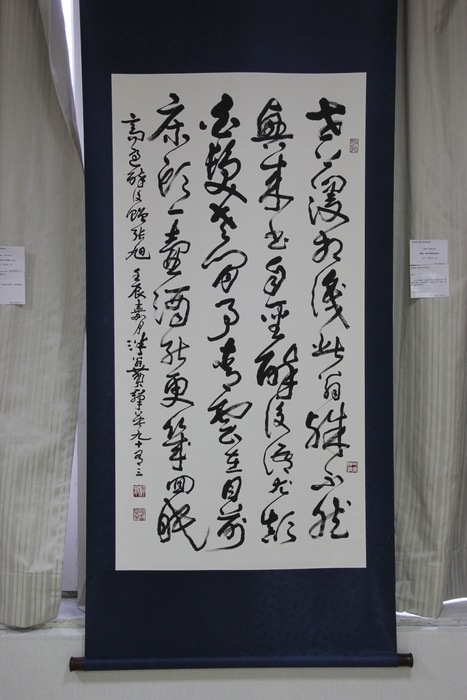 世上漫相識此翁殊不然
興來書自聖醉後語尤顛
白髮老閒事青雲在目前
床頭一壺酒能更幾回眠
高適醉後贈張旭 壬辰 月 年九十有三